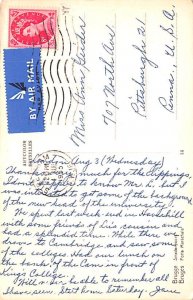 BY AIR MAIL
Miss Ann
707 North Ave
Pittsburgh 21
Penna U.S.A
London Aug 3 (Wednesday)
Thanks so much for the clippings.
to know Mrs L. but
some of the background
of the new head of the university
We spent last week-end in Haverhill
with some friends of his cousins and
had a splendid time. While there we
drove to Cambridge and saw some
of the colleges. Had our lunch on
the banks of the Cam in front of
King's College.
Will or be able to remember all I
have seen. Start home Saturday. Jane
Brugge
Bruges